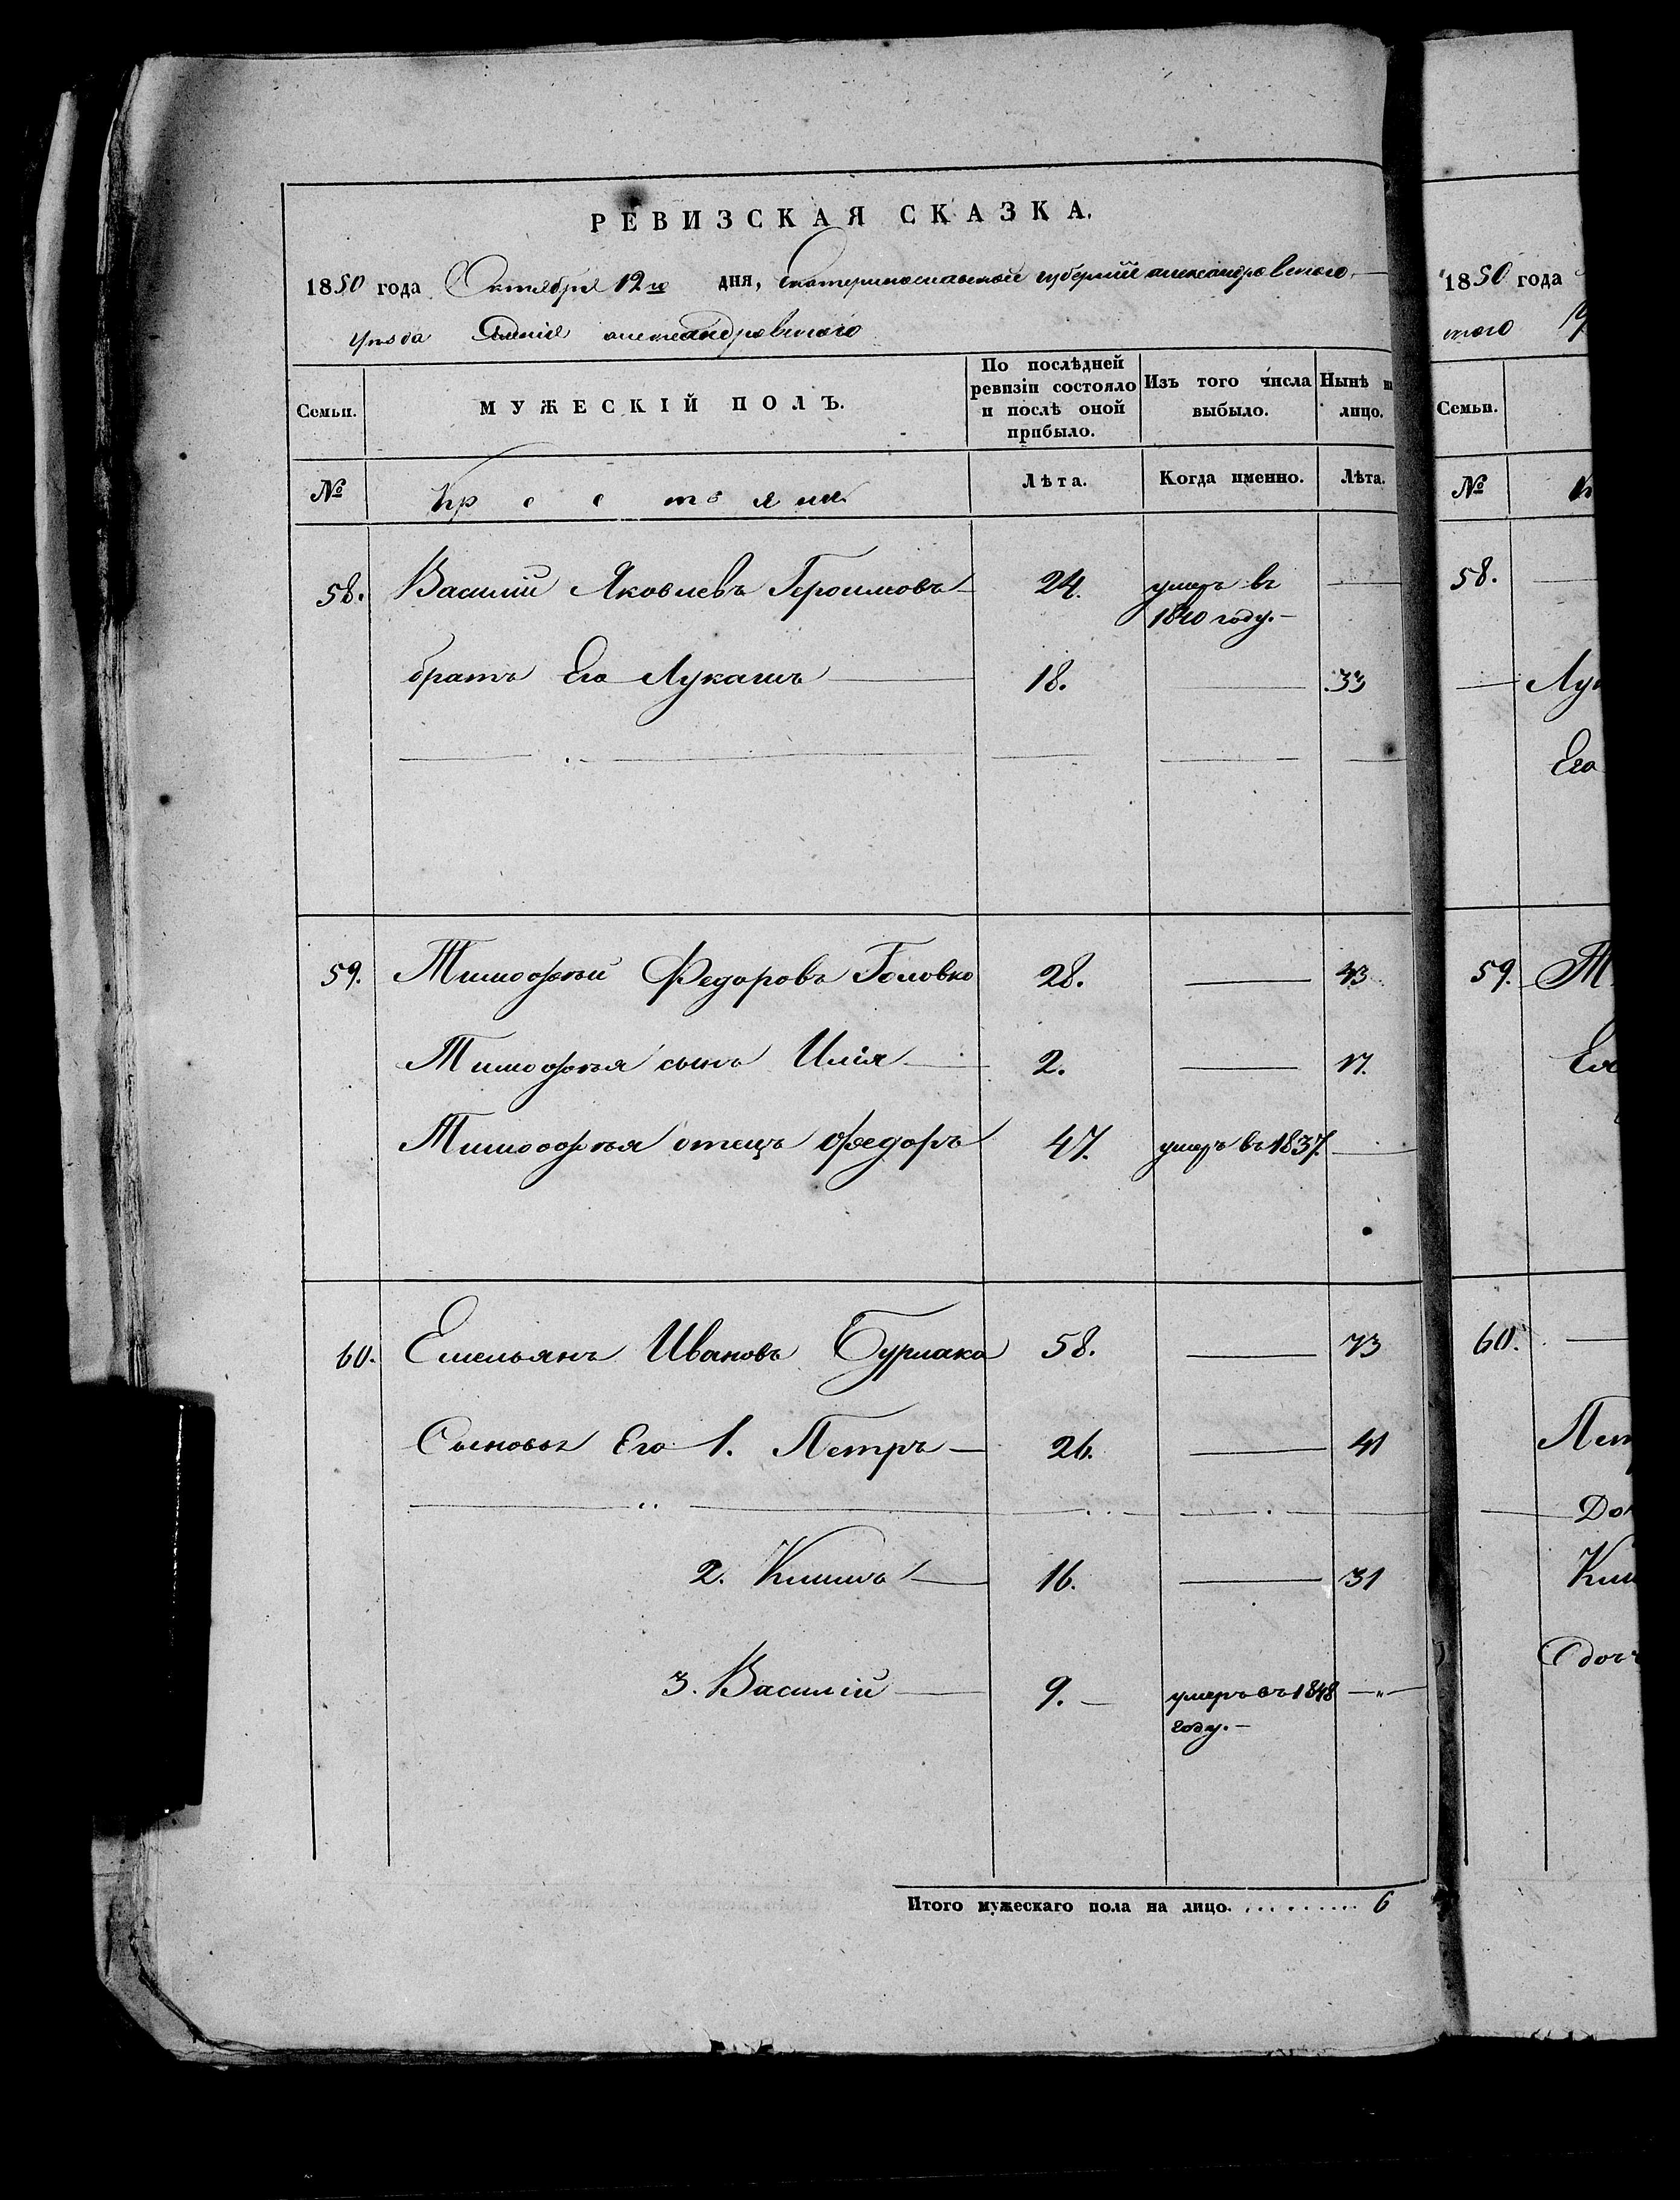 РЕВИЗСКАЯ СКАЗКА.
1850 года Октября 12го дня, Екатеринославской губернии александровского
уезда Имения александровского
Семьи. МУЖЕСКІЙ ПОЛЪ. По послѣдней ревизіи состояло и послѣ оной прибыло. Изъ того числа выбыло. Нынѣ на лицо.
№ Крестьяне Лѣта. Когда именно. Лѣта.
58. Василий Яковлевъ Героимовъ 24. умеръ въ
1840 году.
братъ Его Лукашъ 18. 33
59. Тимофѣй Федоровъ Головко 28. 43
Тимофѣя сынъ Илія 2. 17.
Тимофѣя отецъ Федоръ 47. умеръ въ 1837.
60. Емельянъ Ивановъ Бурлака 58. 73
Сыновья Его 1. Петръ 26. 41
2. Климъ 16. 31
3. Василій 9. умеръ въ 1848
году.
Итого мужескаго пола на лицо. 6
1850 года
ского
Семьи.
№
58.
Лук
Его
59. Т
Ея
60.
Пет
До
Кли